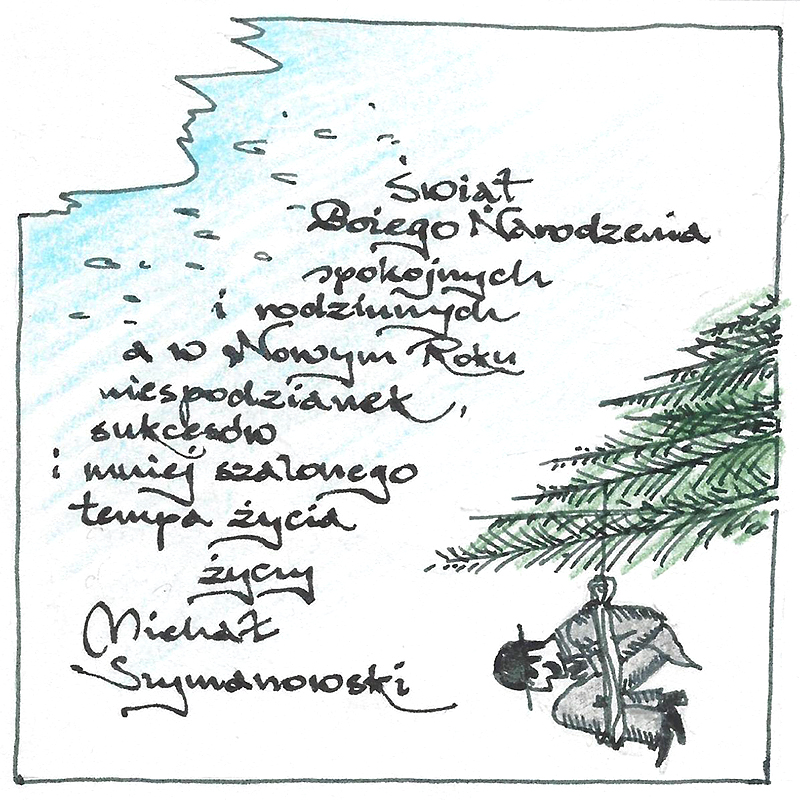 Świąt
Bożego Narodzenia
spokojnych
i rodzinnych
a w Nowym Roku
niespodzianek,
sukcesów
i mniej szalonego
tempa życia
życzy
Michał
Szymanowski